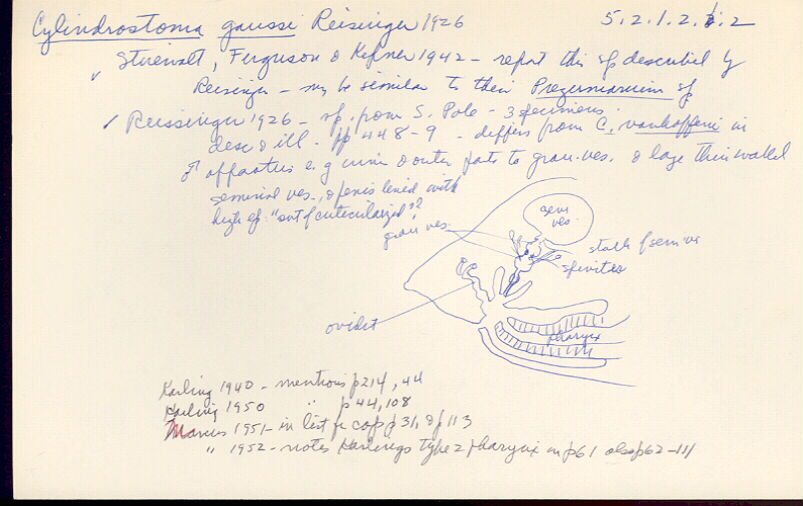 Cylindrostoma gaussi Reisinger 1926 5.2.1.2.2
Steinbolt, Ferguson & Kepner 1942 - report this sp described by
Reisinger - may be similar to their Pregermarium sp
Reissinger 1926 - sp. from S. Pole - 3 specimens.
desc & ill. pp 448-9 - differs from C. vanhoffeni in
♂ apparatus e.g inner & outer parts to gran. ves. & large thin walled
seminal ves., & penis lined with
high ep. "out of cuticularized"?
gran ves.
sem
ves.
stalk of sem ves
spivites
ovidct
pharynx
Karling 1940 - mentions p214, 44
Karling 1950 " p 44, 108
Marcus 1951 - in list fr cop p 31, & p 113
" 1952 - notes Karlings type 2 pharynx on p61 also p62-111